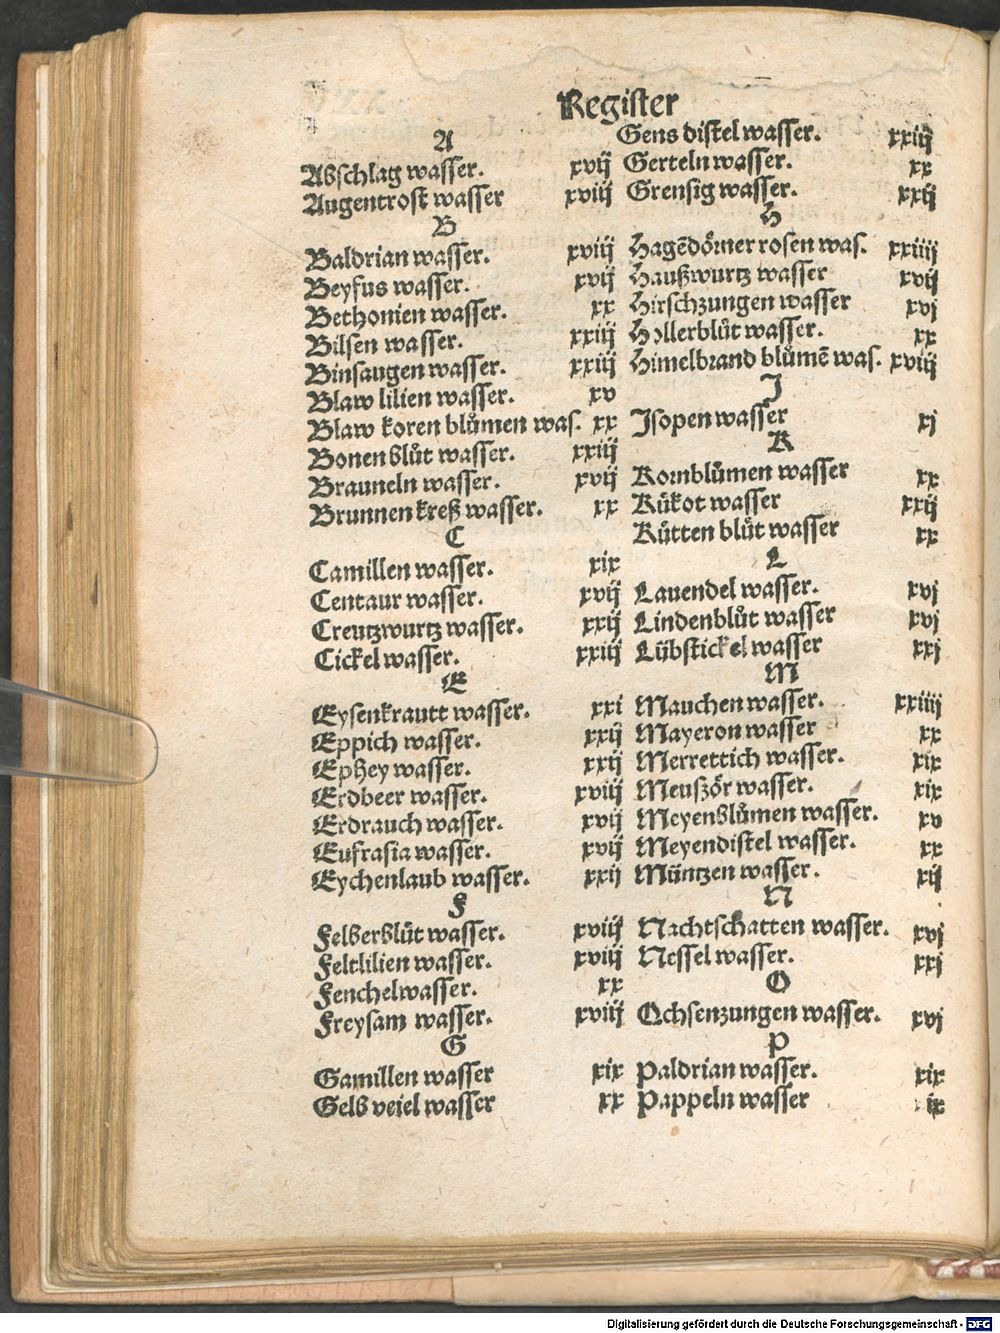 Register
A
Abschlag wasser. xvij
Augentrost wasser xviij
B
Baldrian wasser. xviij
Beyfus wasser. xvij
Bethonien wasser. xx
Bilsen wasser. xxiij
Binsaugen wasser. xxiij
Blaw lilien wasser. xv
Blaw koren blůmen was. xx
Bonen blůt wasser. xxiij
Brauneln wasser. xvij
Brunnen kreß wasser. xx
C
Camillen wasser. xix
Centaur wasser. xvij
Creutzwurtz wasser. xxij
Cickel wasser. xxiij
E
Eysenkrautt wasser. xxi
Eppich wasser. xxij
Ephey wasser. xxij
Erdbeer wasser. xviij
Erdrauch wasser. xvij
Eufrasia wasser. xvij
Eychenlaub wasser. xxij
F
Felberblůt wasser. xviij
Feltlilien wasser. xviij
Fenchelwasser. xx
Freysam wasser. xviij
G
Gamillen wasser xix
Gelb veiel wasser xx
Gens distel wasser. xxiij
Gerteln wasser. xx
Grensig wasser. xxij
H
Hagēdörner rosen was. xxiiij
Haußwurtz wasser xvij
Hirschzungen wasser xvj
Hollerblůt wasser. xx
Himelbrand blůmē was. xviij
J
Jsopen wasser xj
K
Kornblůmen wasser xx
Kůkot wasser xxij
Kütten blůt wasser xx
L
Lauendel wasser. xvj
Lindenblůt wasser xvj
Lübstickel wasser xxj
M
Mauchen wasser. xxiiij
Mayeron wasser xx
Merrettich wasser. xix
Meuször wasser. xix
Meyenblůmen wasser. xv
Meyendistel wasser. xx
Müntzen wasser. xij
N
Nachtschatten wasser. xvj
Nessel wasser. xxj
O
Ochsenzungen wasser. xvj
P
Paldrian wasser. xix
Pappeln wasser ix
Digitalisierung gefördert durch die Deutsche Forschungsgemeinschaft - DFG